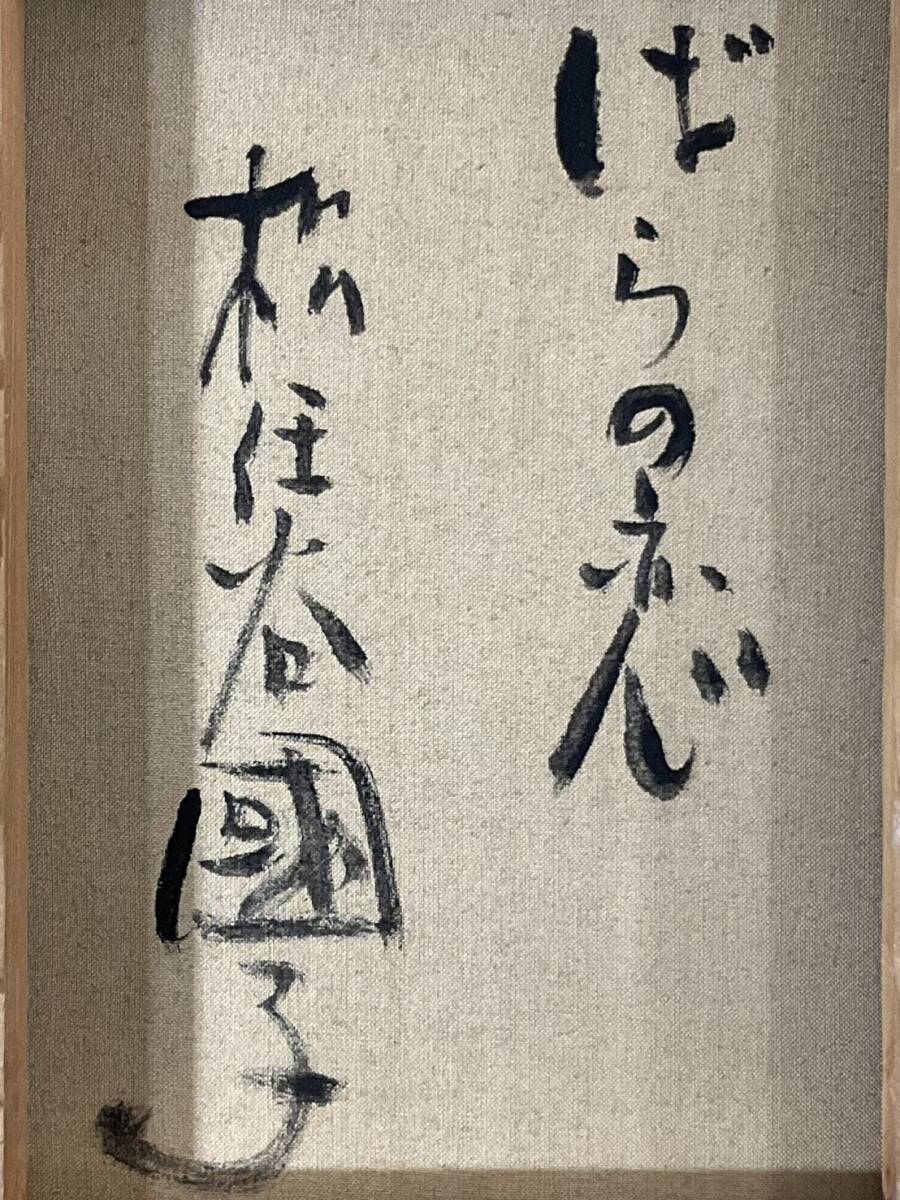 ばらの恋
松任谷國子